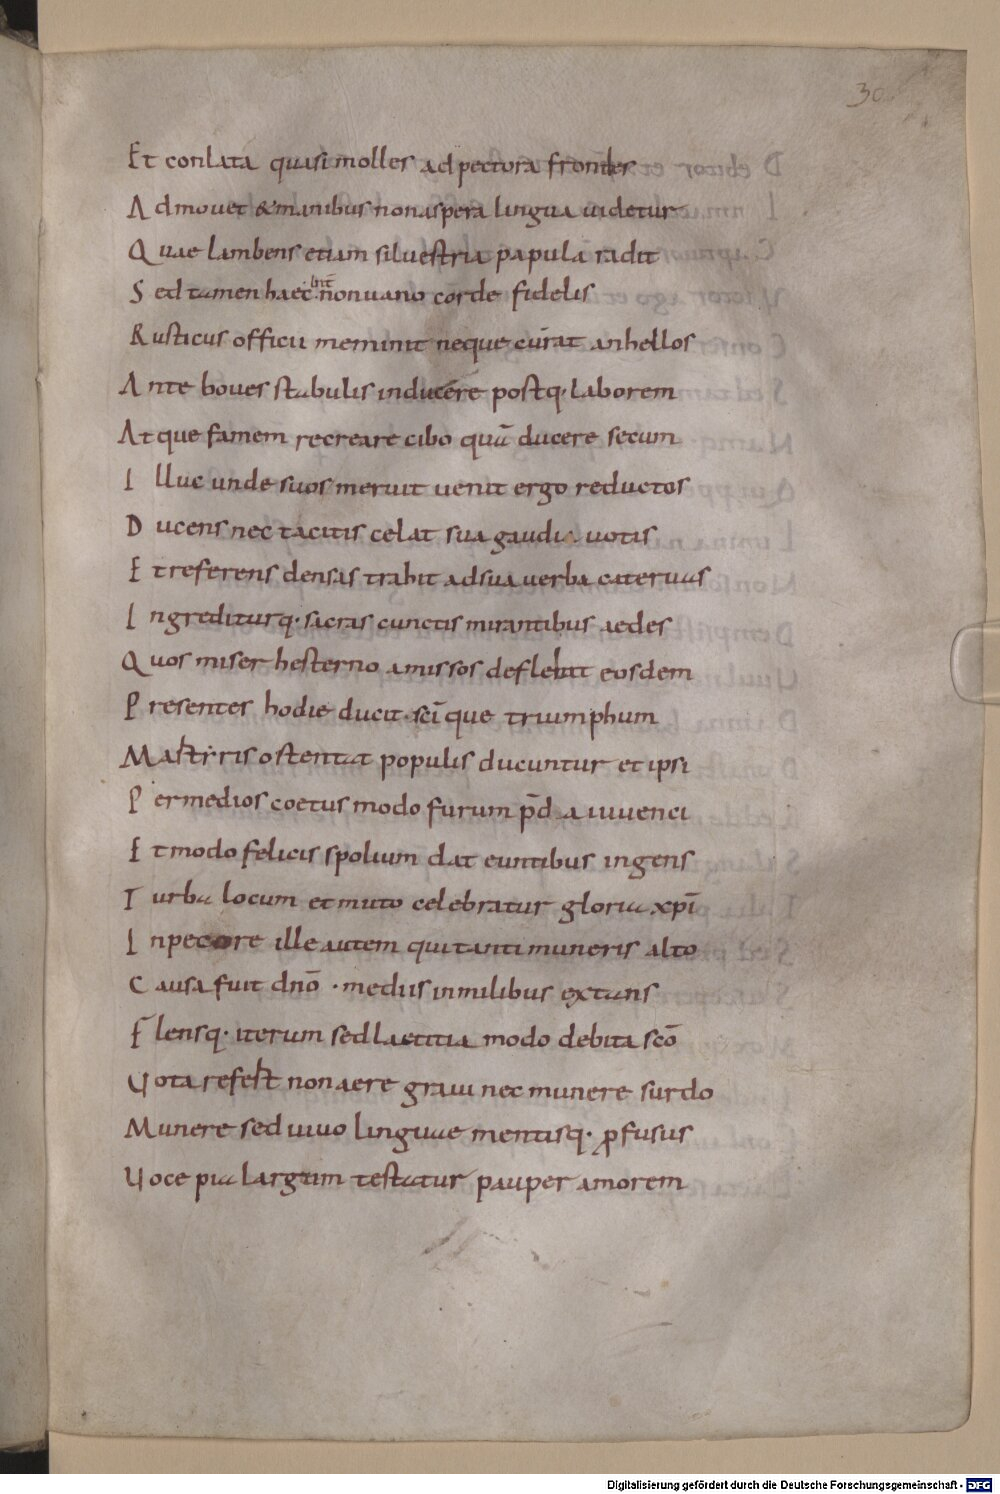 30
Et conlata quasi molles ad pectora frondes
Admouet & manibus non aspera lingua uidetur
Quae lambens etiam siluestria papula radit
Sed tamen haec non uano corde fidelis
Rusticus officii meminit neque cūrat anhellos
Ante boues stabulis inducere postq· laborem
Atque famem recreare cibo quā ducere secum
Illuc unde suos meruit uenit ergo reductos
Ducens nec tacitis celat sua gaudia uotis
Et referens densas trahit ad sua uerba cateruas
Ingrediturq· sacras cunctis mirantibus aedes
Quos miser hesterno amissos deflebit eosdem
Presentes hodie ducit· sc̄ique triumphum
Martyris ostentat populis ducuntur et ipsi
Per medios coetus modo furum p̄da iuuenci
Et modo felicis spolium dat euntibus ingens
Turba locum et muto celebratur gloria xp̄i
In pecore ille autem qui tanti muneris alto
Causa fuit dn̄o · mediis in milibus extans
Flensq· iterum sed laetitia modo debita sc̄o
Uota refert non aere graui nec munere surdo
Munere sed uiuo linguae mentisq· ꝓfusus
Uoce pia largum testatur pauper amorem
Digitalisierung gefördert durch die Deutsche Forschungsgemeinschaft - DFG